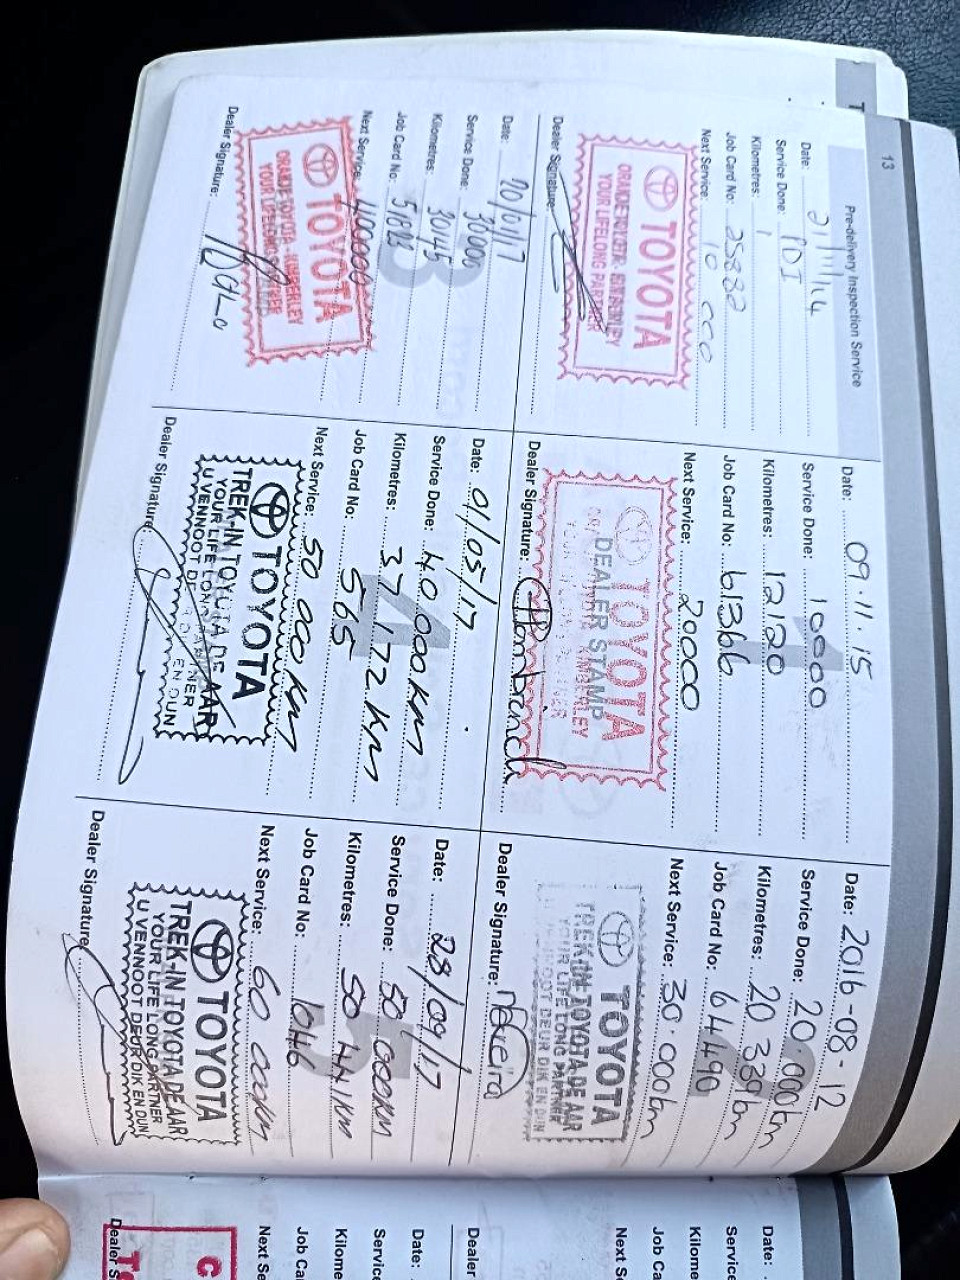 13
Pre-delivery Inspection Service
Date: 21/11/14
Service Done: PDI
Kilometres: 1
Job Card No: 25882
Next Service: 10 000
TOYOTA
ORANJE TOYOTA KIMBERLEY
YOUR LIFELONG PARTNER
Dealer Signature:
Date: 09.11.15
Service Done: 10000
Kilometres: 12120
Job Card No: 61366
Next Service: 20000
TOYOTA
DEALER STAMP
KIMBERLEY
Dealer Signature:
Date: 2016-08-12
Service Done: 20.000km
Kilometres: 20 339km
Job Card No: 64490
Next Service: 30.000km
TOYOTA
TREK-IN TOYOTA DE AAR
YOUR LIFE LONG PARTNER
U VENNOOT DEUR DIK EN DUN
Dealer Signature:
Date: 20/01/17
Service Done: 30000
Kilometres: 30145
Job Card No:
Next Service: 40000
TOYOTA
ORANJE TOYOTA KIMBERLEY
YOUR LIFELONG PARTNER
Dealer Signature:
4
Date: 01/05/17
Service Done: 40 000KM
Kilometres: 37172 KM
Job Card No: 565
Next Service: 50 000 KM
TOYOTA
TREK-IN TOYOTA DE AAR
YOUR LIFE LONG PARTNER
U VENNOOT DEUR DIK EN DUN
Dealer Signature:
5
Date: 28/09/17
Service Done: 50 000KM
Kilometres: 50 441KM
Job Card No: 1046
Next Service: 60 000KM
TOYOTA
TREK-IN TOYOTA DE AAR
YOUR LIFE LONG PARTNER
U VENNOOT DEUR DIK EN DUN
Dealer Signature:
Date:
Service
Kilome
Job Ca
Next S
Dealer
Date:
Servic
Kilome
Job Ca
Next Se
Dealer S